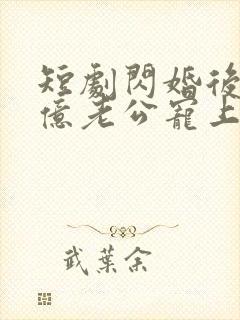 短劇閃婚後
億老公寵上
武葉余